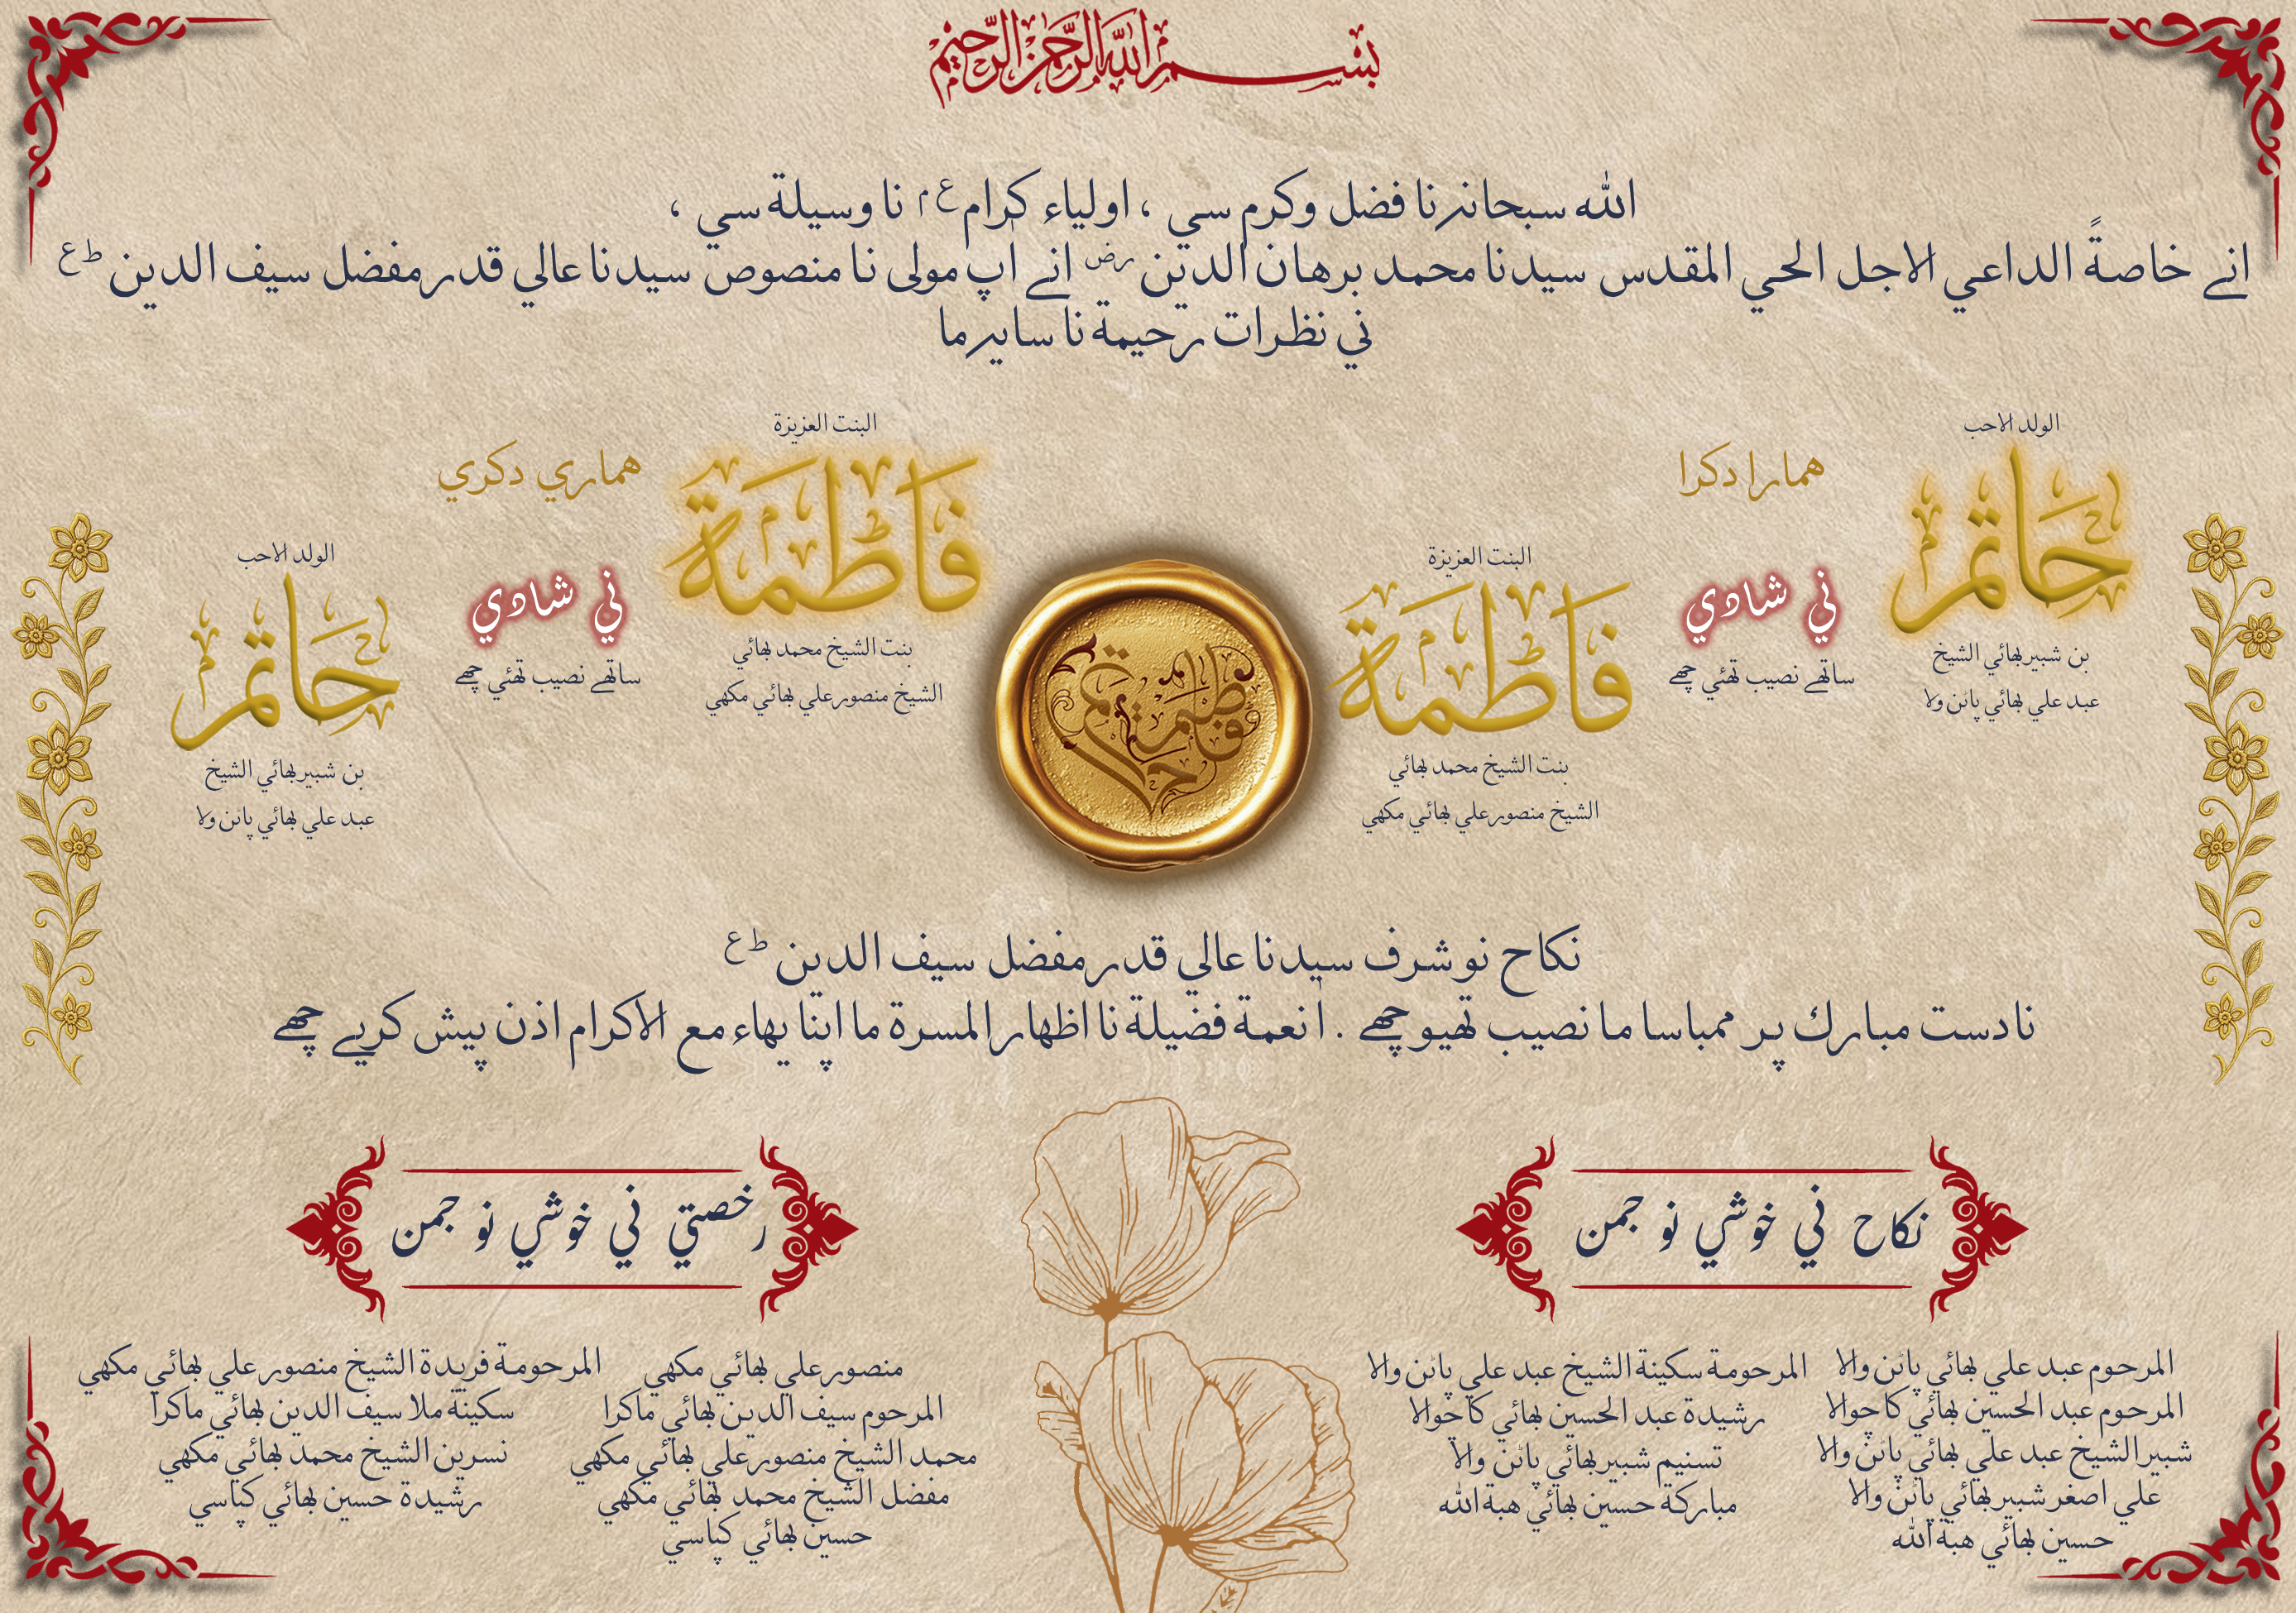 بسم الله الرحمن الرحيم
الله سبحانه نا فضل وكرم سي ، اولياء كرام ع م نا وسيلة سي ،
انے خاصةً الداعي الاجل الحي المقدس سيدنا محمد برهان الدين رض انے اٰپ مولى نا منصوص سيدنا عالي قدر مفضل سيف الدين ط ع
ني نظرات رحيمة نا سايه ما
الولد الاحب
حاتم
بن شبير بھائي الشيخ
عبد علي بھائي پاٹن ولا
همارا دكرا
ني شادي
ساتھے نصيب تھئي چھے
البنت العزيزة
فاطمة
بنت الشيخ محمد بھائي
الشيخ منصور علي بھائي مكھي
فاطمة
حاتم
البنت العزيزة
فاطمة
بنت الشيخ محمد بھائي
الشيخ منصور علي بھائي مكھي
هماري دكري
ني شادي
ساتھے نصيب تھئي چھے
الولد الاحب
حاتم
بن شبير بھائي الشيخ
عبد علي بھائي پاٹن ولا
نكاح نو شرف سيدنا عالي قدر مفضل سيف الدين ط ع
نا دست مبارك پر ممباسا ما نصيب تھيو چھے . اٰ نعمة فضيلة نا اظهار المسرة ما اپنا يهاء مع الاكرام اذن پيش كريے چھے
نكاح ني خوشي نو جمن
المرحوم عبد علي بھائي پاٹن والا
المرحوم عبد الحسين بھائي كاچوالا
شبير الشيخ عبد علي بھائي پاٹن والا
علي اصغر شبير بھائي پاٹن والا
حسين بھائي هبة الله
المرحومة سكينة الشيخ عبد علي پاٹن والا
رشيدة عبد الحسين بھائي كاچوالا
تسنيم شبير بھائي پاٹن والا
مباركة حسين بھائي هبة الله
رخصتي ني خوشي نو جمن
منصور علي بھائي مكھي
المرحوم سيف الدين بھائي ماكرا
محمد الشيخ منصور علي بھائي مكھي
مفضل الشيخ محمد بھائي مكھي
حسين بھائي كپاسي
المرحومة فريدة الشيخ منصور علي بھائي مكھي
سكينة ملا سيف الدين بھائي ماكرا
نسرين الشيخ محمد بھائي مكھي
رشيدة حسين بھائي كپاسي